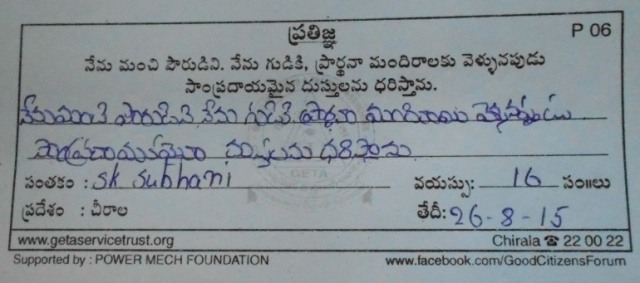 ప్రతిజ్ఞ P 06
నేను మంచి పౌరుడిని. నేను గుడికి, ప్రార్థనా మందిరాలకు వెళ్ళునపుడు
సాంప్రదాయమైన దుస్తులను ధరిస్తాను.
నేను మంచి పౌరుడిని. నేను గుడికి, ప్రార్థనా మందిరాలకు వెళ్ళునప్పుడు
సాంప్రదాయమైన దుస్తులను ధరిస్తాను
సంతకం : SK. Subhani వయస్సు: 16 సం॥లు
ప్రదేశం : చీరాల తేదీ: 26-8-15
GETA
www.getaservicetrust.org Chirala ☎ 22 00 22
Supported by : POWER MECH FOUNDATION www.facebook.com/GoodCitizensForum